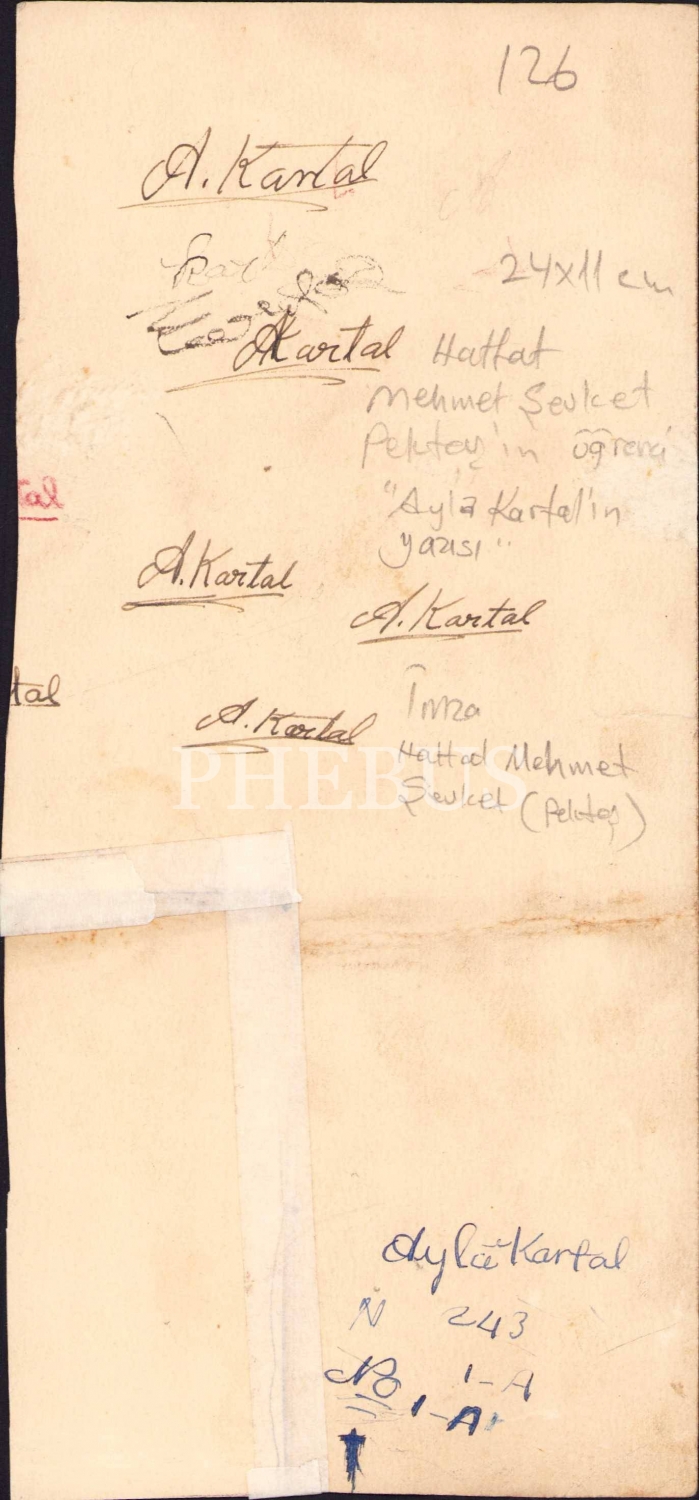 126
A. Kartal
Kart
24x11 cm
AKartal
Hattat
Mehmet Şevket
Pektaş'ın öğrenci
"Ayla Kartal'ın
yazısı"
tal
A. Kartal
A. Kartal
tal
A. Kartal
İmza
Hattat Mehmet
Şevket (Pektaş)
PHEBUS
Ayla Kartal
N 243
No 1-A
1-A